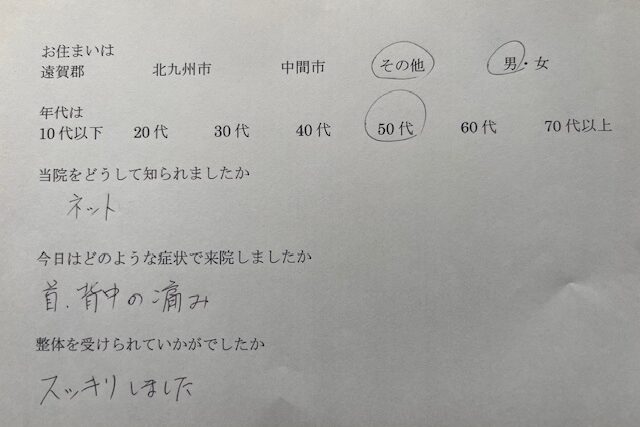 お住まいは
遠賀郡 北九州市 中間市 その他 男・女
年代は
10代以下 20代 30代 40代 50代 60代 70代以上
当院をどうして知られましたか
ネット
今日はどのような症状で来院しましたか
首、背中の痛み
整体を受けられていかがでしたか
スッキリしました